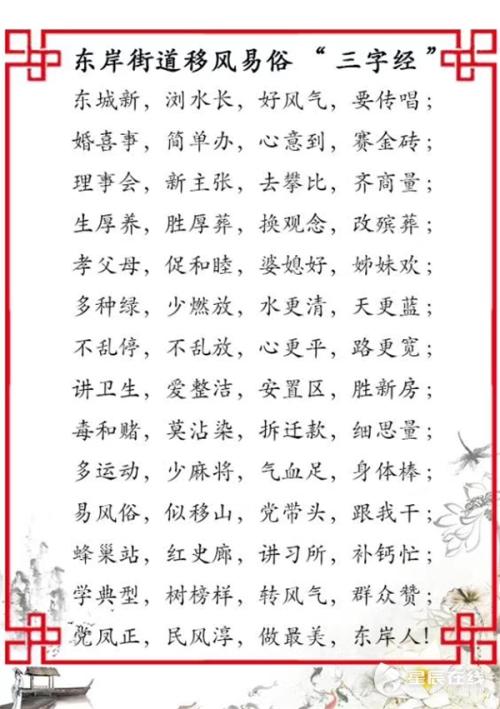 东岸街道移风易俗“三字经”
东城新，浏水长，好风气，要传唱；
婚喜事，简单办，心意到，赛金砖；
理事会，新主张，去攀比，齐商量；
生厚养，胜厚葬，换观念，改殡葬；
孝父母，促和睦，婆媳好，姊妹欢；
多种绿，少燃放，水更清，天更蓝；
不乱停，不乱放，心更平，路更宽；
讲卫生，爱整洁，安置区，胜新房；
毒和赌，莫沾染，拆迁款，细思量；
多运动，少麻将，气血足，身体棒；
易风俗，似移山，党带头，跟我干；
蜂巢站，红史廊，讲习所，补钙忙；
学典型，树榜样，转风气，群众赞；
党风正，民风淳，做最美，东岸人!
星辰在线